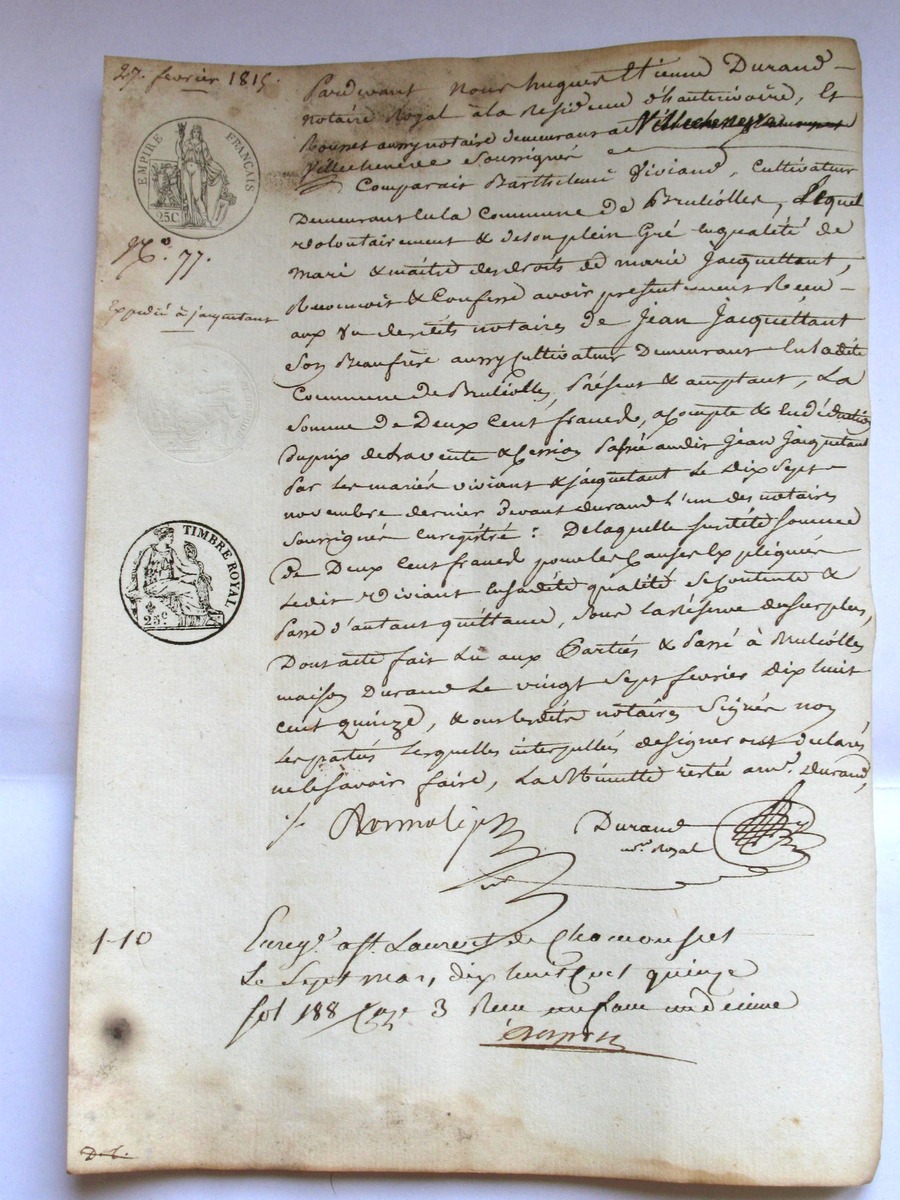 27. fevrier 1815.
Pardevant Nous hugues Etienne Durand
notaire Royal à la Residence d'hauterivoire, Et
aussy notaire demeurant a Villecheneve
Villecheneve Soussignés
Comparait Barthelemi Viviand, Cultivateur
EMPIRE FRANÇAIS
25C
Demeurant en la Commune de Bruliolles, Lequel
volontairement & de son plein Gré en qualité de
No. 77.
mari & maitre des droits de marie Jacquettant,
Expedié à jacquetant
Reconnoit & Confesse avoir presentement Recu
aux vu desdits notaires de Jean Jacquettant
Son Beaufrère aussy Cultivateur Demeurant en ladite
Commune de Brulliolles, Présent & acceptant, La
Somme de Deux Cent francs, acompte & en déduction
du prix de la vente & Cession Passée audit Jean Jacquetant
Par les mariés viviant & jacquetant Le Dix Sept
novembre dernier devant durand L'un des notaires
TIMBRE ROYAL
25c
Soussignés Enregistré : De laquelle susdite Somme
de Deux Cent francs pour les Causes Expliquées
Ledit Viviant en sadite qualité Se Contente &
Passe d'autant quittance, Sous la Réserve du surplus,
Dont acte fait Lu aux Parties & Passé à Brulliolles
maison Durand Le vingt Sept fevrier Dix huit
cent quinze, & ont lesdits notaires Signés non
Les parties Lesquelles interpellées de signer ont declarés
ne le Savoir faire, La Minutte restée a Mr. Durand,
Durand
nre. Royal
1-10
Enregé. a St. Laurent de Chamousset
Le Sept mars, dix huit Cent quinze
fol 188 Case 3 Recu un franc un decime